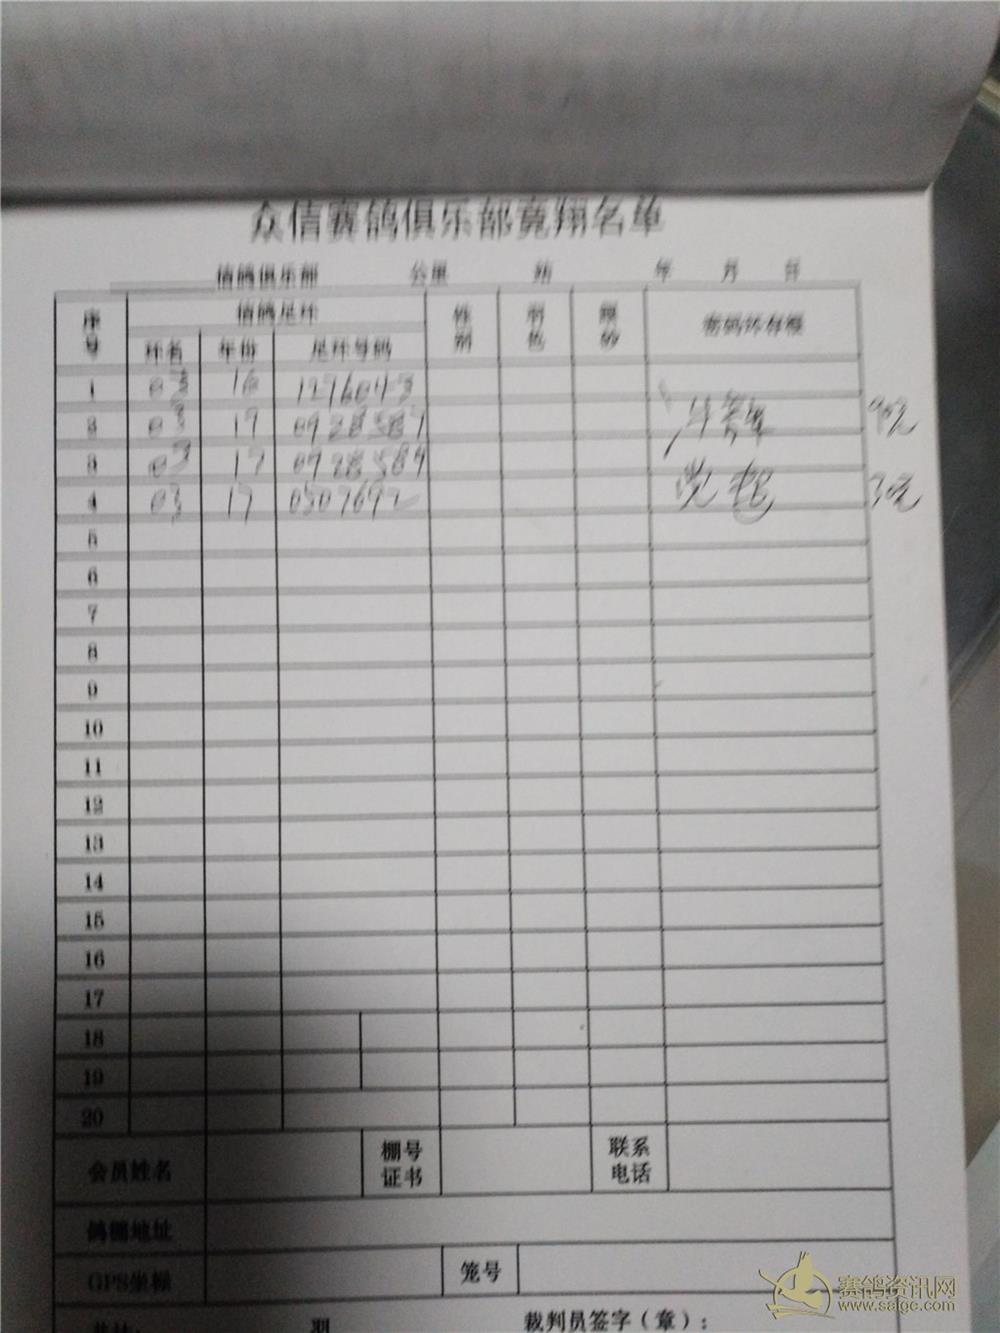 众信赛鸽俱乐部竞翔名单
信鸽俱乐部 公里 站 年 月 日
序号 信鸽足环 性别 羽色 眼砂 密码环存根
环名 年份 足环号码
1 03 16 1276043
2 03 17 0928587
3 03 17 0928589
4 03 17 0507692
5
6
7
8
9
10
11
12
13
14
15
16
17
18
19
20
会员姓名 棚号证书 联系电话
鸽棚地址
GPS坐标 笼号
共计: 羽 裁判员签字(章):
赛鸽资讯网
www.saigc.com